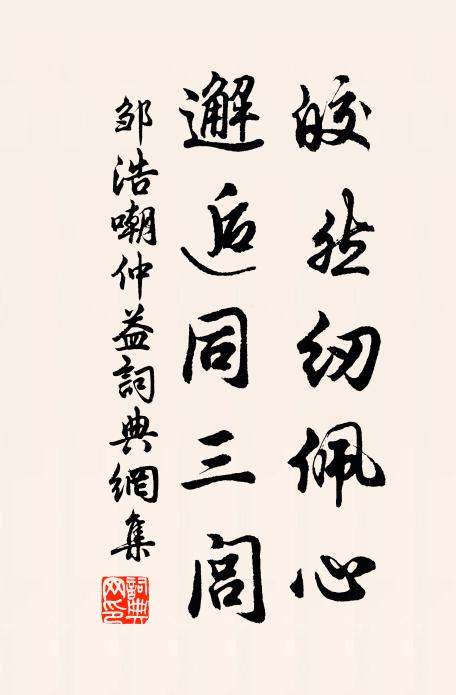 皎然纫佩心
邂逅同三闾
邹浩嘲仲益詞典網集
詞典网印